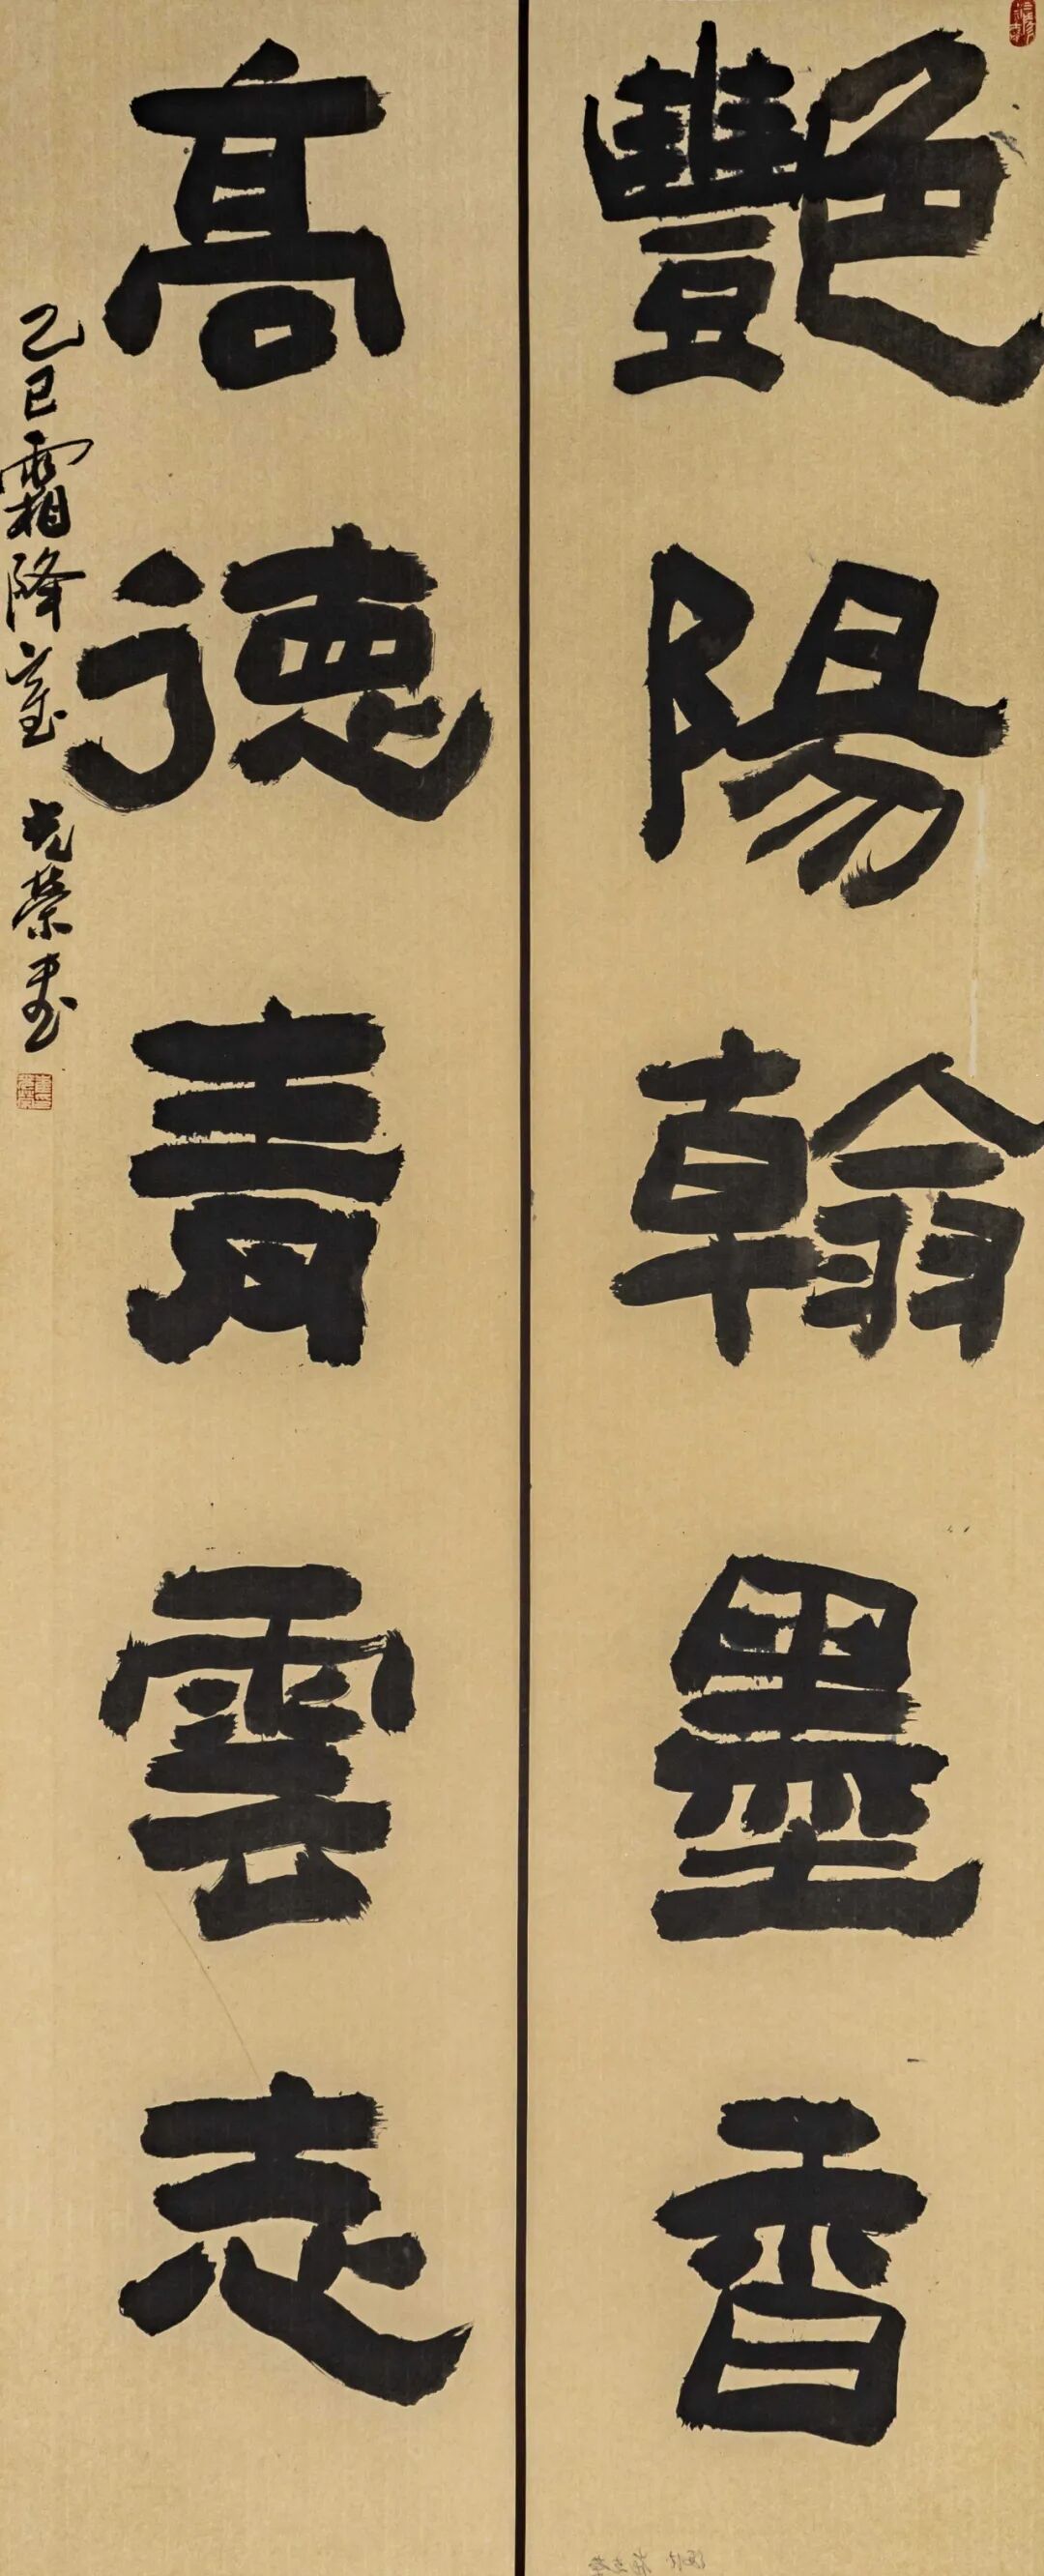 豔陽翰墨香
高德青雲志
乙巳霜降 光榮書